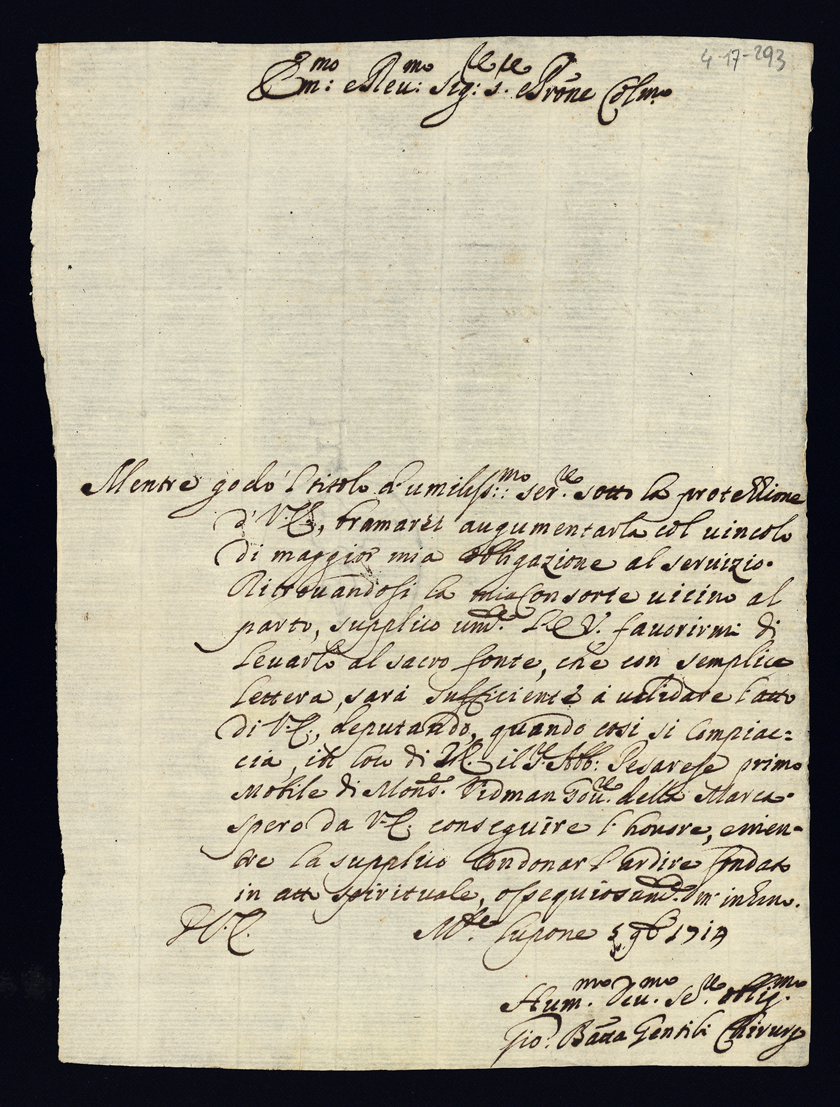 4-17-293
Em:mo e Reu:mo Sig:re S.re e Prõne Colmo
Mentre godo 'l titolo d'umiliss:mo ser.re sotto la protettione
d'V.E., bramarei augumentarla col uincolo
di maggior mia obligazione al seruizio.
Ritrouandosi la mia Consorte uicino al
parto, supplico um.te l'E.V. fauorirmi di
leuarlo al sacro fonte, che con semplice
lettera, sarà sufficiente à ualidare l'atto
di V.E., deputando, quando così si compiac=
cia, in loco di V.E. il S.e Abb: Pesarese primo
nobile di Mons.e Vidman Gou.re della Marca.
spero da V.E. conseguire l'honore, e men=
tre la supplico condonar l'ardire fondato
in atto spirituale, ossequiosand.e m'inchino.
D V.E. M.te Lupone 5 9b 1714
Hum.mo Deu.mo Se.re oblig.mo
Gio. Batta Gentili Chirurg